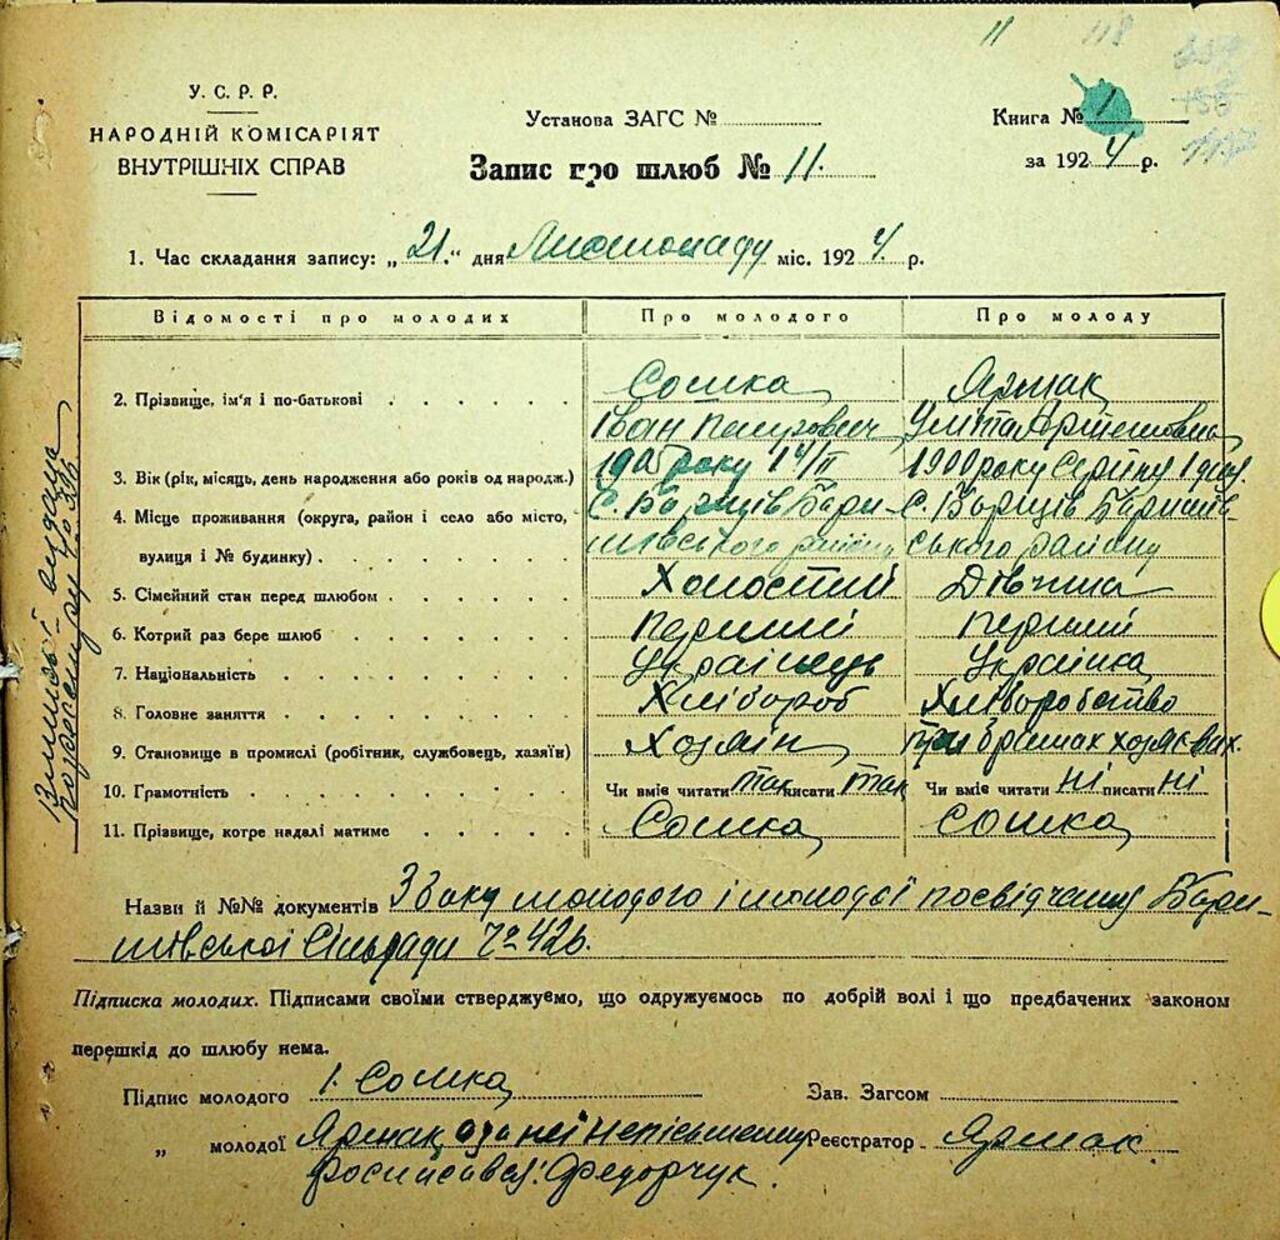 11 118
У. С. Р. Р.
НАРОДНІЙ КОМІСАРІЯТ
ВНУТРІШНІХ СПРАВ
Установа ЗАГС №
Книга № 1
Запис про шлюб № 11.
за 1924 р.
1. Час складання запису: „21." дня Листопаду міс. 1924. р.
Відомості про молодих Про молодого Про молоду
Сошка Ярмак
2. Прізвище, ім'я і по-батькові
Іван Петрович Уліта Артемовна
3. Вік (рік, місяць, день народження або років од народж.) 1905 року 14/II 1900 року Серпню 1 дня.
4. Місце проживання (округа, район і село або місто, С. Борщів Бари- С. Борщів Баришів-
вулиця і № будинку) шівського району ського району
5. Сімейний стан перед шлюбом Холостий Дівчина
6. Котрий раз бере шлюб Перший Перший
7. Національність Українець Українка
8. Головне заняття Хлібороб Хліборобство
9. Становище в промислі (робітник, службовець, хазяїн) Хозяїн при братах хозяєвах.
10. Грамотність Чи вміє читати так писати так Чи вміє читати ні писати ні
11. Прізвище, котре надалі матиме Сошка Сошка
Назви й №№ документів З боку молодого і молодої посвідчення Бари-
шівської Сільради № 426.
Підписка молодих. Підписами своїми стверджуємо, що одружуємось по добрій волі і що предбачених законом
перешкід до шлюбу нема.
Підпис молодого І. Сошка Зав. Загсом
„ молодої Ярмак, а за неї неписьменну Реєстратор Ярмак
росписався: Федорчук.